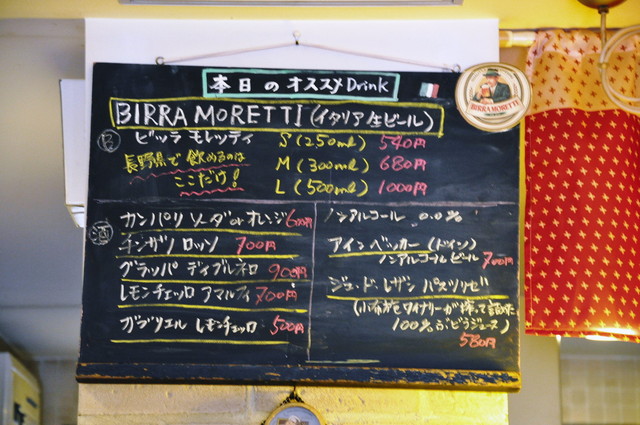 本日のオススメDrink
BIRRA MORETTI (イタリア生ビール)
ビッラ モレッティ S (250ml) 540円
長野県で飲めるのは M (300ml) 680円
ここだけ! L (500ml) 1000円
酒
カンパリ ソーダorオレンジ 600円
チンザノ ロッソ 700円
グラッパ ディブルネロ 900円
レモンチェッロ アマルフィ 700円
ガブリエル レモンチェッロ 500円
ノンアルコール 0.0%
アインベッカー (ドイツ)
ノンアルコールビール 700円
ジュ・ド・レザン パスツリゼ
(小布施ワイナリーが搾って詰めた
100%ぶどうジュース)
580円
BIRRA MORETTI